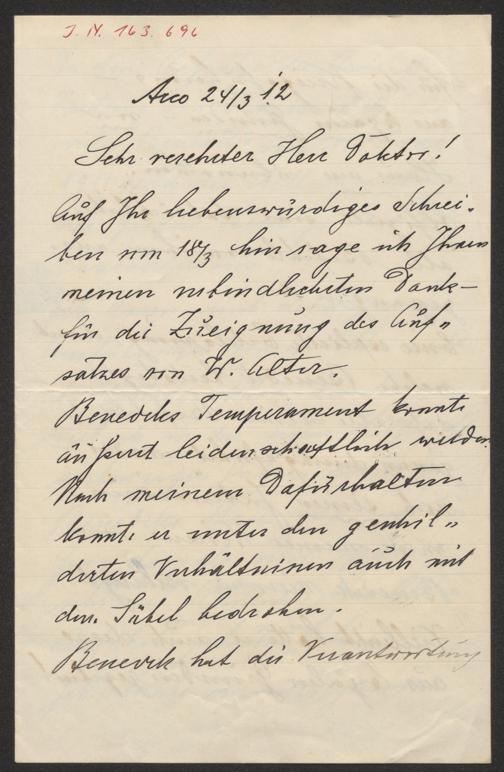 J. N. 163.696
Arco 24/3 12
Sehr verehrter Herr Doktor!
Auf Ihr liebenswürdiges Schrei-
ben vom 18/3 hin sage ich Ihnen
meinen verbindlichsten Dank
für die Zueignung des Auf-
satzes von W. Alter.
Benedeks Temperament konnte
äußerst leidenschaftlich werden.
Nach meinem Dafürhalten
konnte er unter den geschil-
derten Verhältnissen auch mit
dem Säbel bedrohen.
Benedek hat die Verantwortung